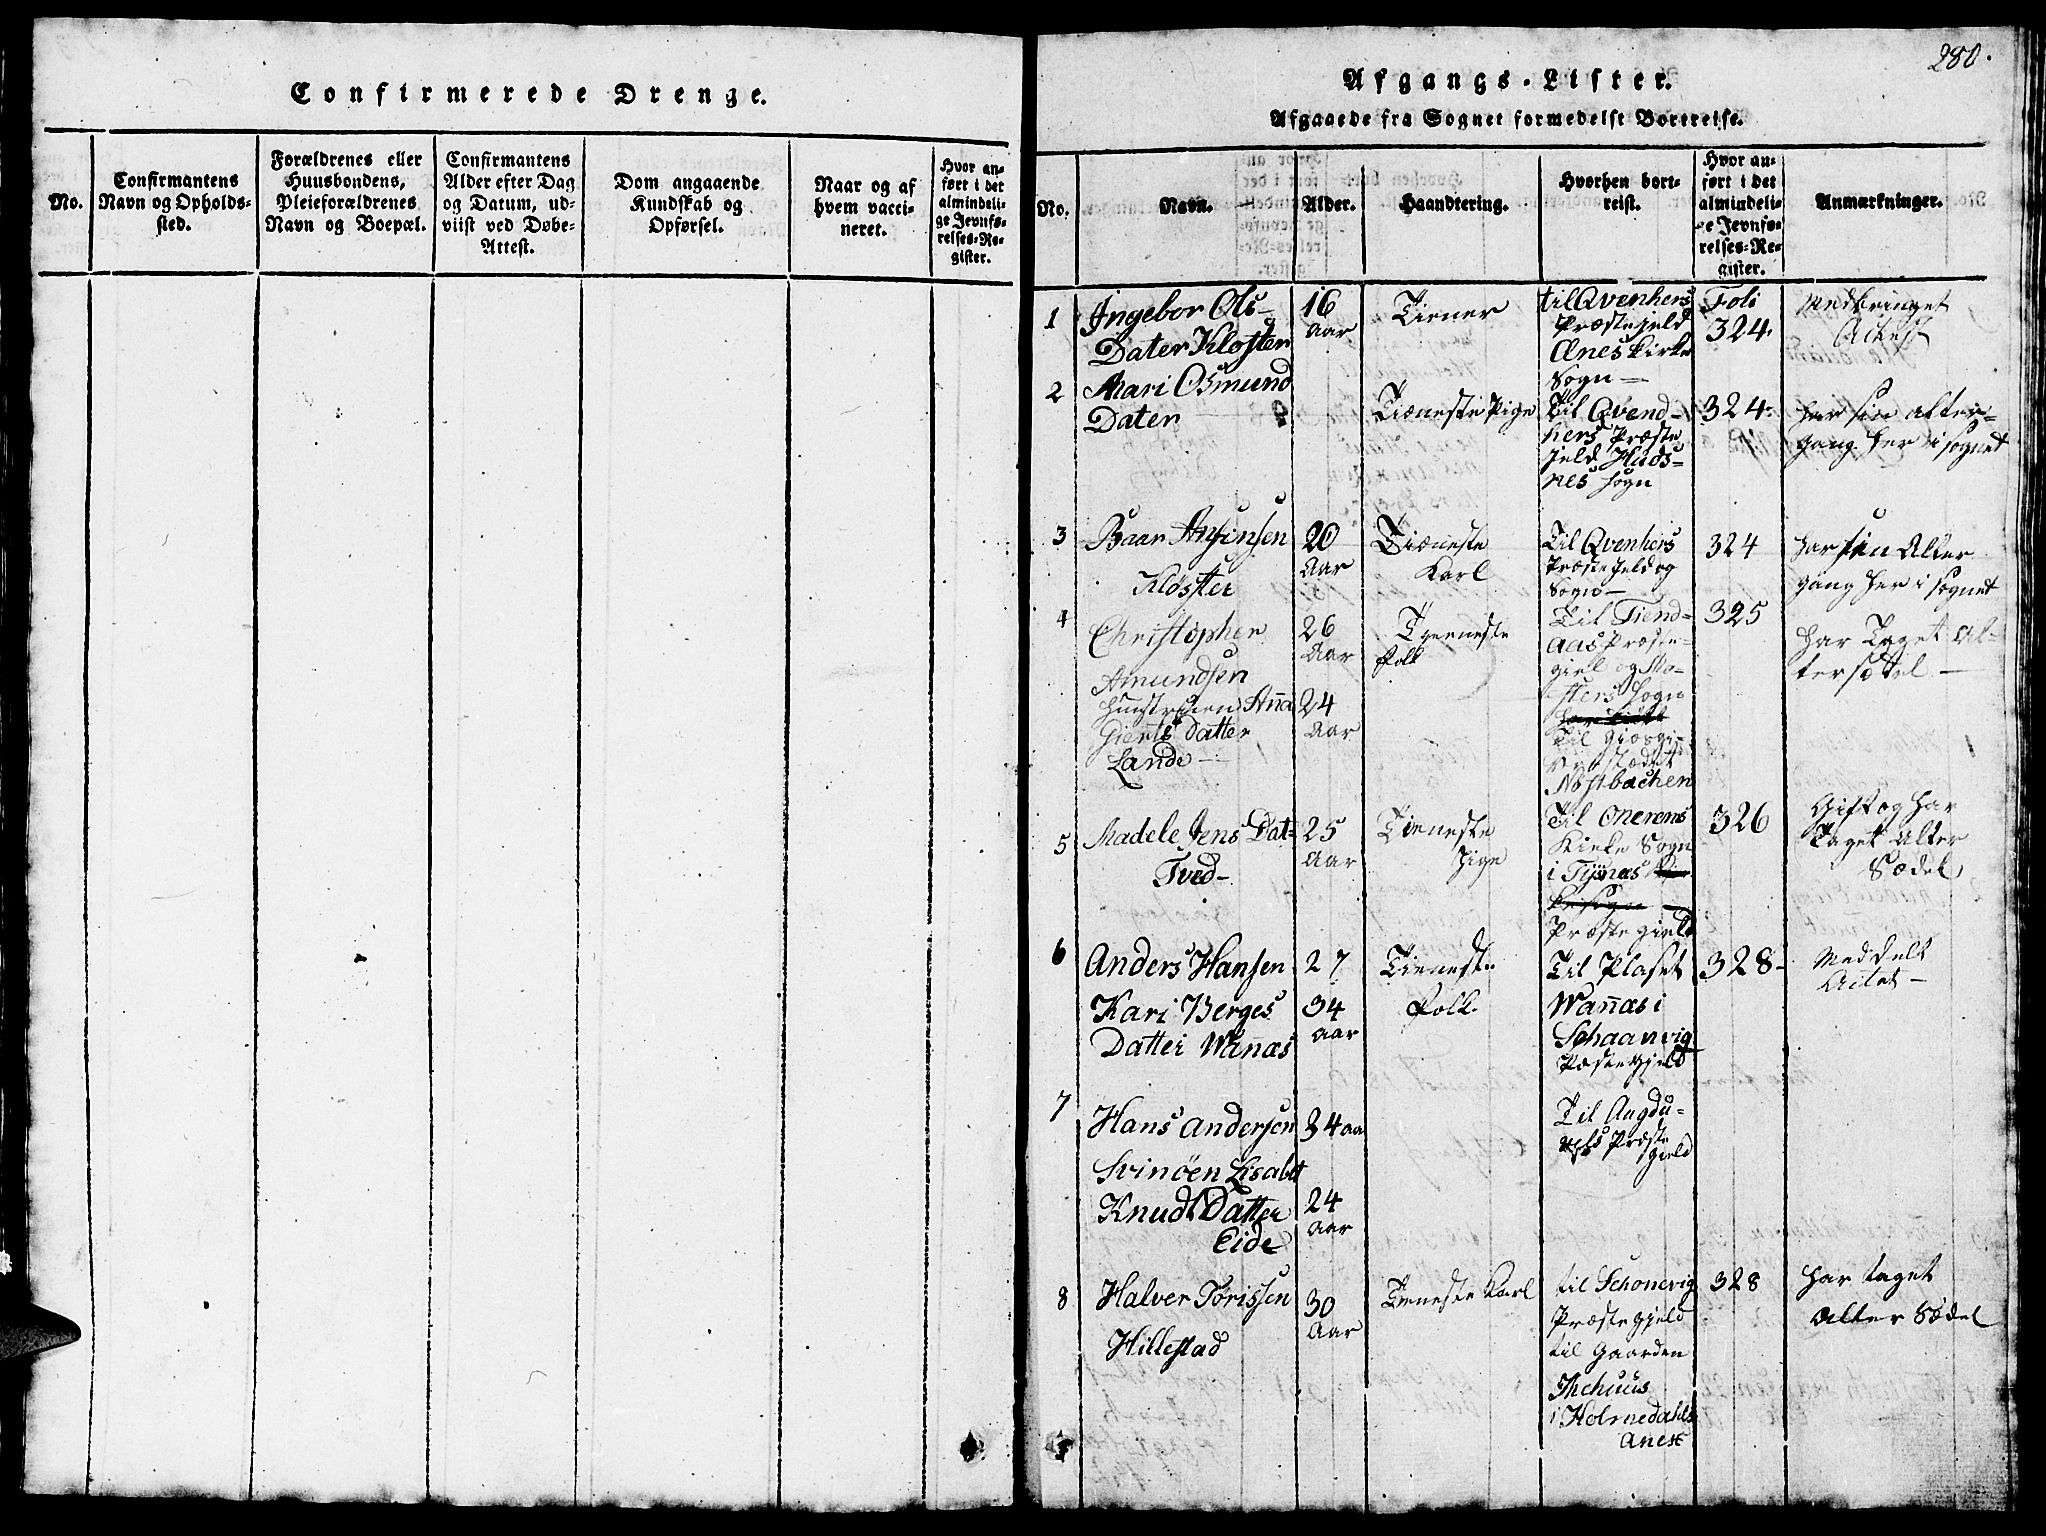 Confirmerede Drenge.
No.
Confirmantens
Navn og Opholds-
sted.
Forældrenes eller
Huusbondens,
Pleieforældrenes
Navn og Boepæl.
Confirmantens
Alder efter Dag
og Datum, ud-
viist ved Døbe-
Attest.
Dom angaaende
Kundskab og
Opførsel.
Naar og af
hvem vacci-
neret.
Hvor an-
ført i det
almindeli-
ge Jevnfø-
relses-Re-
gister.
280.
Afgangs-Lister.
Afgaaede fra Sognet formedelst Bortreise.
No.
Navn.
Alder.
Haandtering.
Hvorhen bort-
reist.
Hvor an-
ført i det
almindeli-
ge Jevnfø-
relses-Re-
gister.
Anmærkninger.
1
Ingebor Ols-
Dater Kloster
16
Aar
Tiener
til Qvenhers
Præstejeld
Ænes Kirke
Sogn
Foli
324.
Medbringet
Attest
2
Mari Osmund
Dater
Tiæneste Pige
Til Qvend-
hers Præste
jeld Huds-
nes sogn
324.
har sin alter-
gang her i sognet
3
Baar Ansinsen
Kloster
20
Aar
Tiæneste
Karl
Til Qvenhers
Præstejeld og
Sogn
324
har sin Alter
gang her i Sognet
4
Christopher
Amundsen
Hustruen Anna
Gierts Datter
Lande
26
Aar
24
Aar
Tjeneste
Folk
Til Fiend-
aas Præste-
giel og Mo-
sters Sogn
Til
Nostbachen
325
har Taget Al-
tersædel
5
Madele Jens Dat-
Tved
25
Aar
Tieneste
Pige
Til Onerems
Kirke Sogn
i Tysnæs
Præste gield
326
Gift og har
Taget Alter
Sædel
6
Anders Hansen
Kari Berges
Datter Wanæs
27
34
Aar
Tieneste
Folk
Til Plaset
Wannæs i
Schaanvig
Præstegjeld
328
Meddelt
7
Hans Andersen
Svinøen Lisabet
Knuds Datter
Eide
34 aa
24
Aar
Til
Præste
Gield
8
Halver Torissen
Hillestad
30
Aar
Tieneste Karl
til Schonevig
Præstegjeld
til Gaarden
i Holmedahls
Anex
328
har taget
Alter Sædel